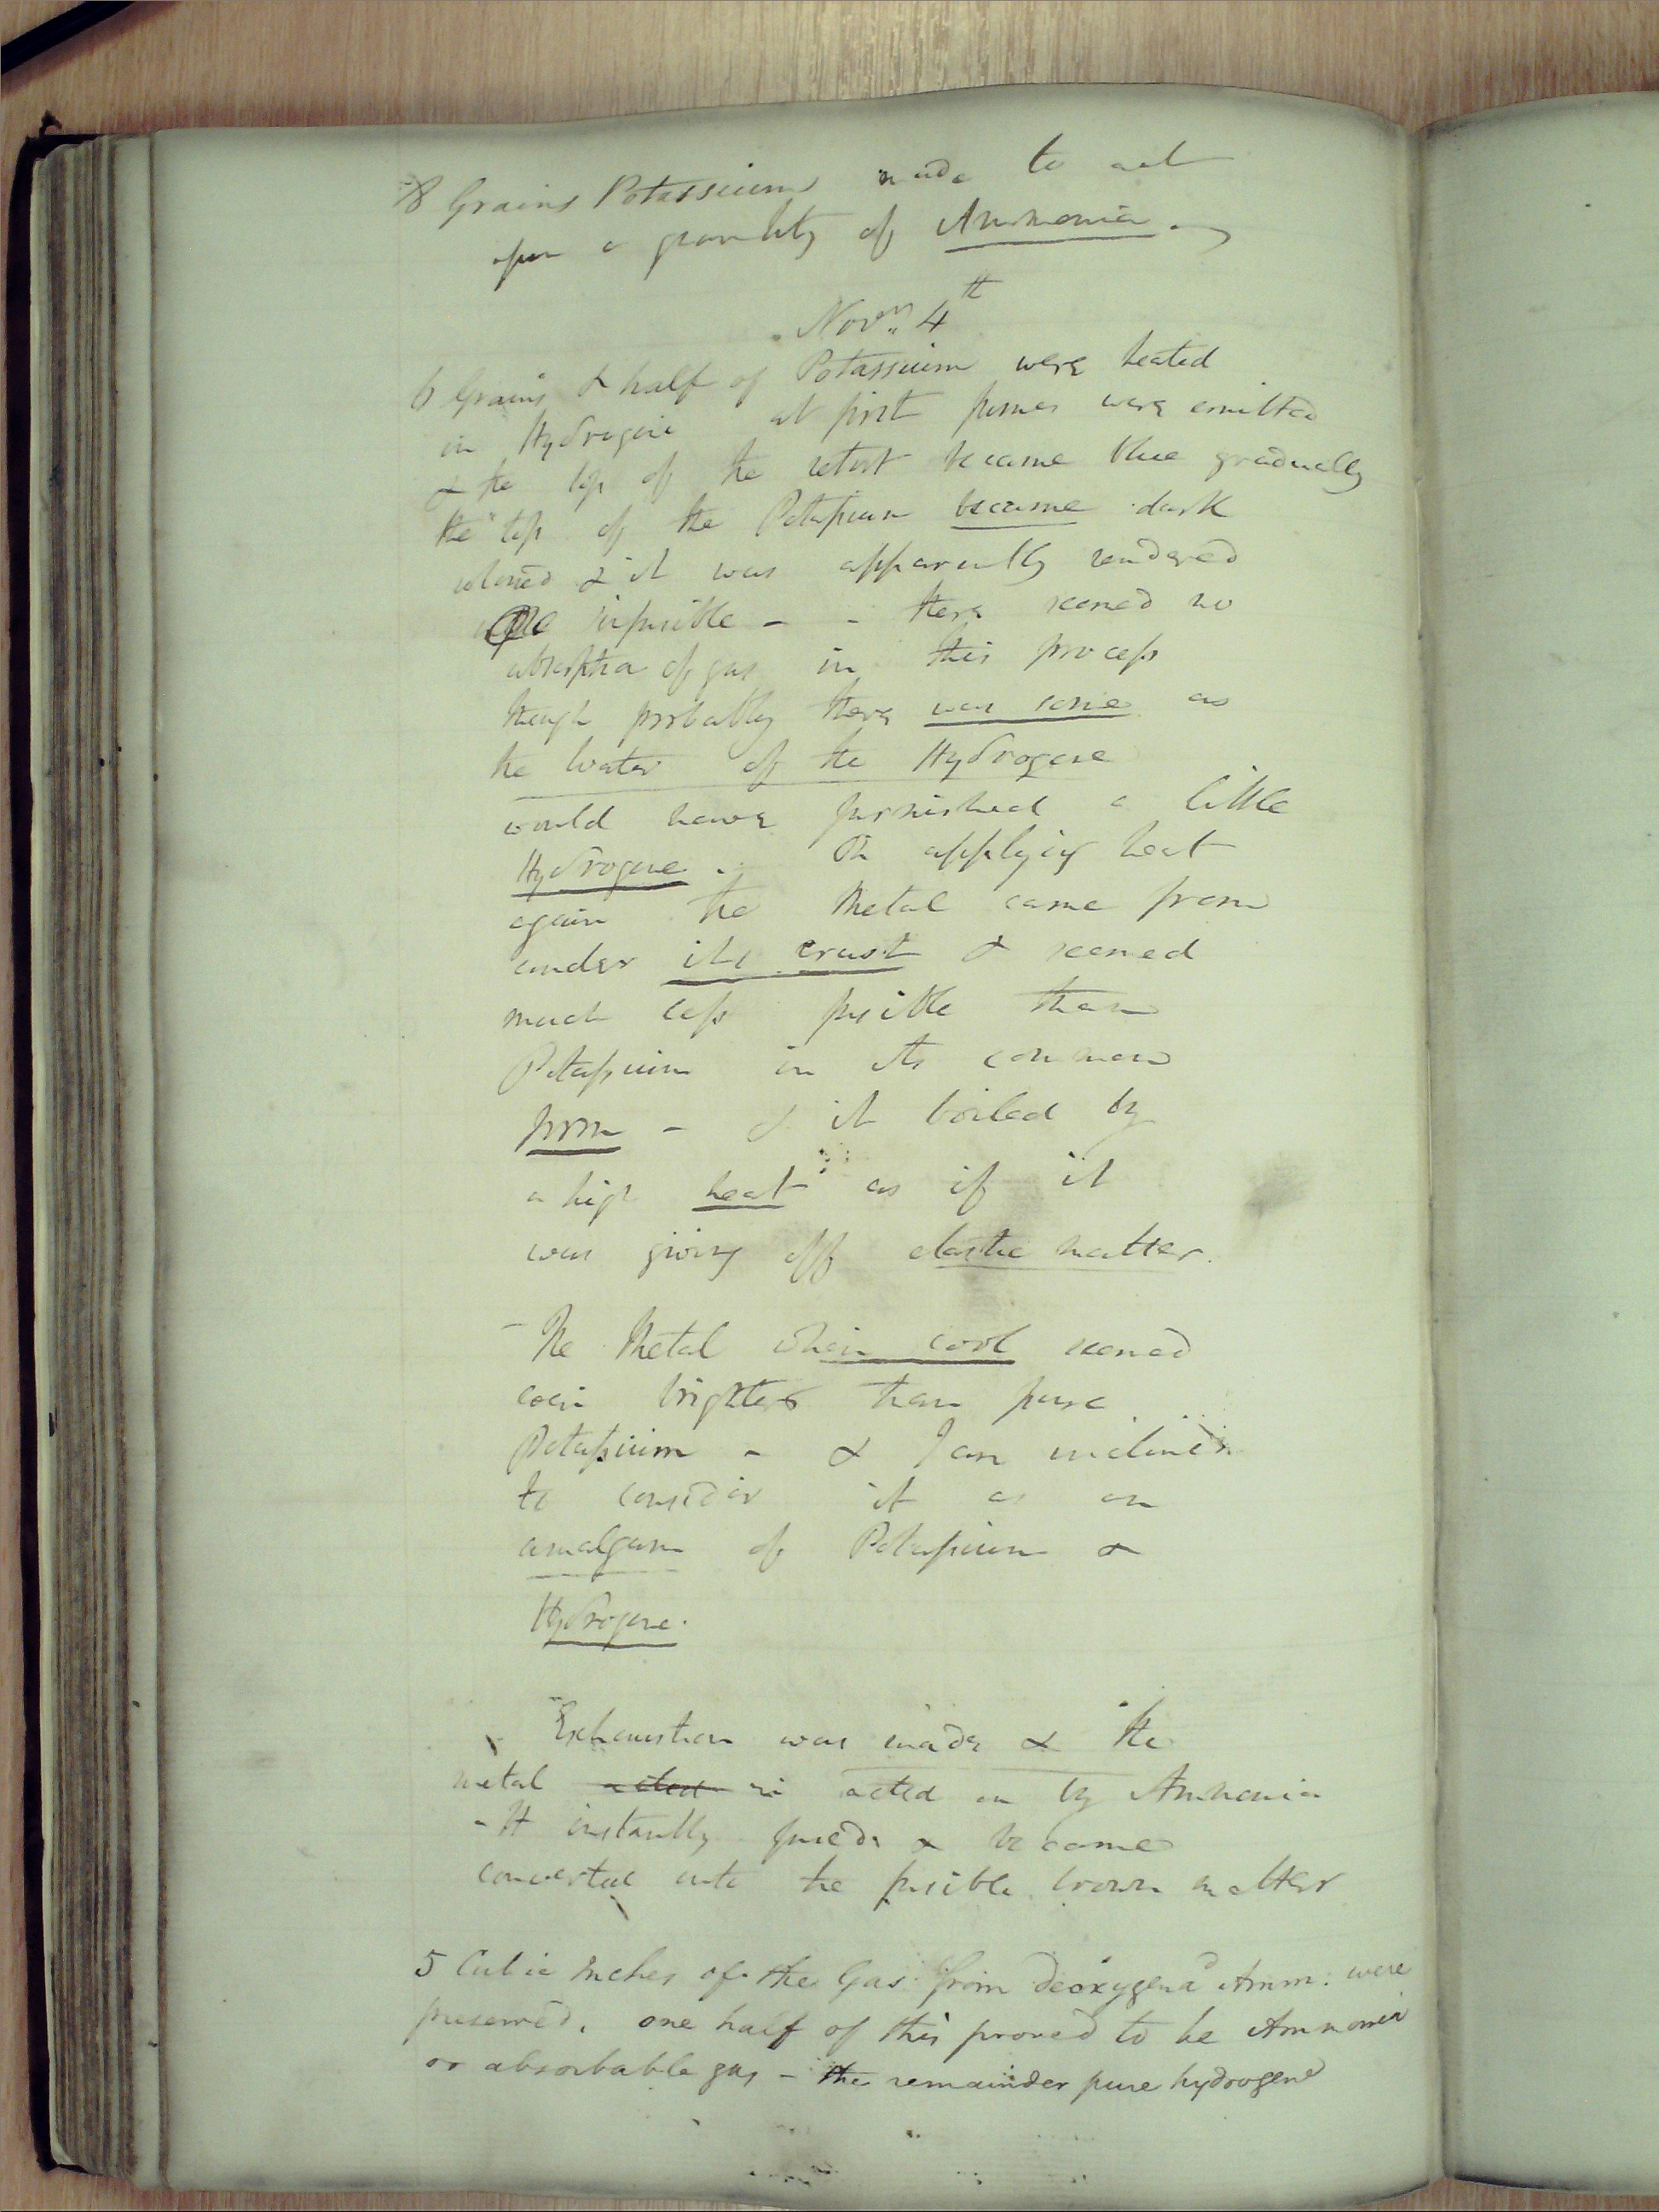 8 Grains Potassium made to act
upon a quantity of Ammonia.
Novr. 4th
6 Grains & half of Potassium were heated
in Hydrogene at first fumes were emitted
& the top of the retort became blue gradually
the top of the Potassium became dark
coloured & it was apparently rendered
infusible - - there seemed no
absorption of gas in this process
though probably there was some as
the Water of the Hydrogene
would have furnished a little
Hydrogene. On applying heat
again the Metal came from
under its crust & seemed
much less fusible than
Potassium in its common
form - & it boiled by
a high heat as if it
was giving off elastic matter.
- The Metal when cool seemed
even brighter than pure
Potassium - & I am inclined
to consider it as an
amalgam of Potassium &
Hydrogene.
Exhaustion was made & the
metal acted is acted on by Ammonia
- It instantly fused & became
converted into the fusible brown matter
5 Cubic Inches of the Gas from deoxygend Amm: were
preserved. one half of this proved to be Ammonia
or absorbable gas - the remainder pure hydrogene